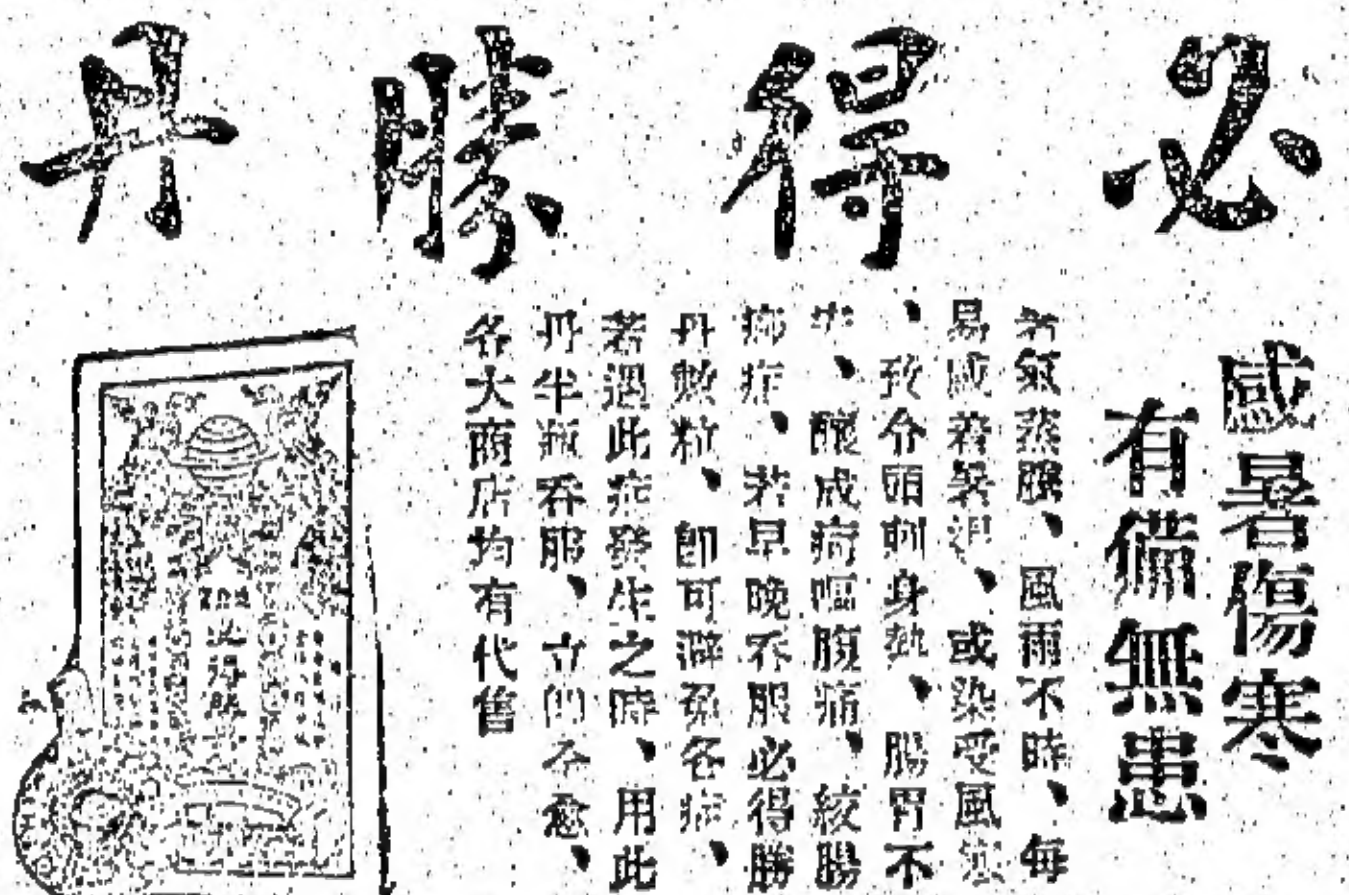 必得勝丹
感暑傷寒
有備無患
暑氣蒸騰、風雨不時、每
易感着暑濕、或染受風寒
、致令頭刺身熱、腸胃不
安、釀成痾嘔腹痛、絞腸
痧症、若早晚吞服必得勝
丹數粒、即可避免各症、
若遇此症發生之時、用此
丹半瓶吞服、立即全愈、
各大商店均有代售
必得勝